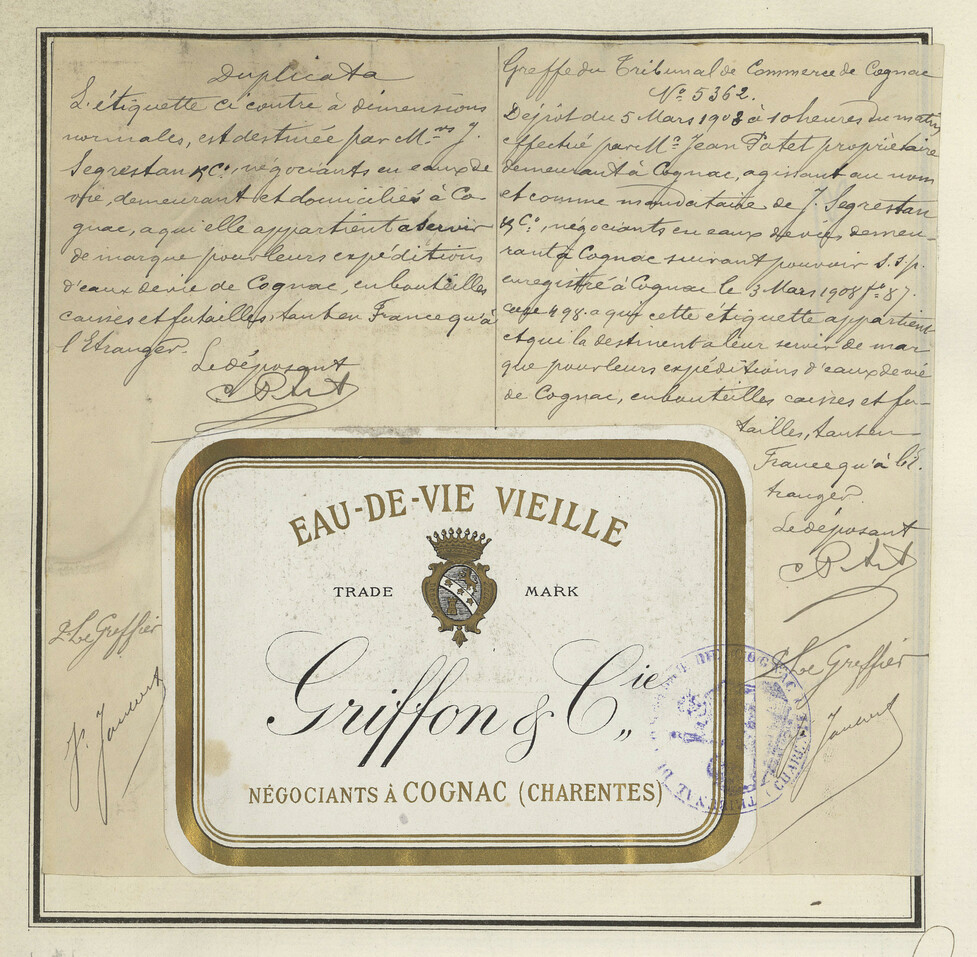 Duplicata
L'étiquette ci contre à dimensions
normales, est destinée par M.rs J.
Segrestan & Co, négociants en eaux de
vie, demeurant et domiciliés à Co-
gnac, a qui elle appartient a servir
de marque pour leurs expéditions
d'eaux de vie de Cognac, en bouteilles
caisses et futailles, tant en France qu'à
l'Etranger.
Le déposant
Greffe du Tribunal de Commerce de Cognac
No 5362.
Dépôt du 5 Mars 1908 à 10 heures du matin
effectué par Mr Jean Patet propriétaire
demeurant à Cognac, agissant au nom
et comme mandataire de J. Segrestan
& Co, négociants en eaux de vies demeu-
rant à Cognac suivant pouvoir s.s.p.
enregistré à Cognac le 3 Mars 1908 fo 87.
case 498. a qui cette étiquette appartient
et qui la destinent a leur servir de mar
que pour leurs expéditions d'eaux de vie
de Cognac, en bouteilles caisses et fu-
tailles, tant en
France qu'à l'é.
tranger.
Le déposant
P. Le Greffier
P. Le Greffier
EAU-DE-VIE VIEILLE
TRADE MARK
Griffon & Cie„
NÉGOCIANTS À COGNAC (CHARENTES)
TRIBUNAL DE COMMERCE DE COGNAC (CHARENTE)